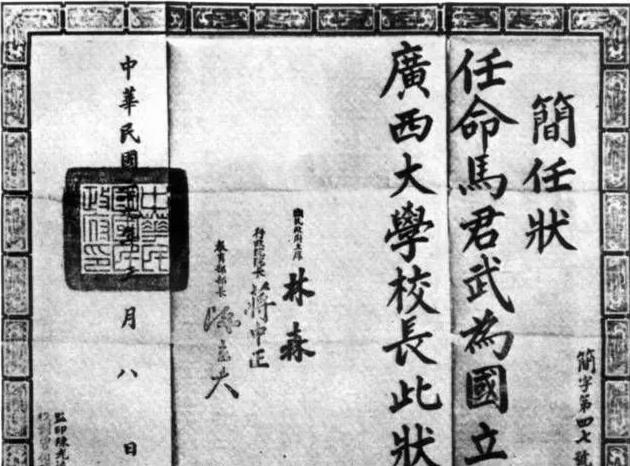 簡任狀
簡字第四七號
任命馬君武為國立
廣西大學校長此狀
國民政府主席 林森
行政院院長 蔣中正
教育部部長 陳立夫
中華民國 年 月八日
監印陳光
校對曾